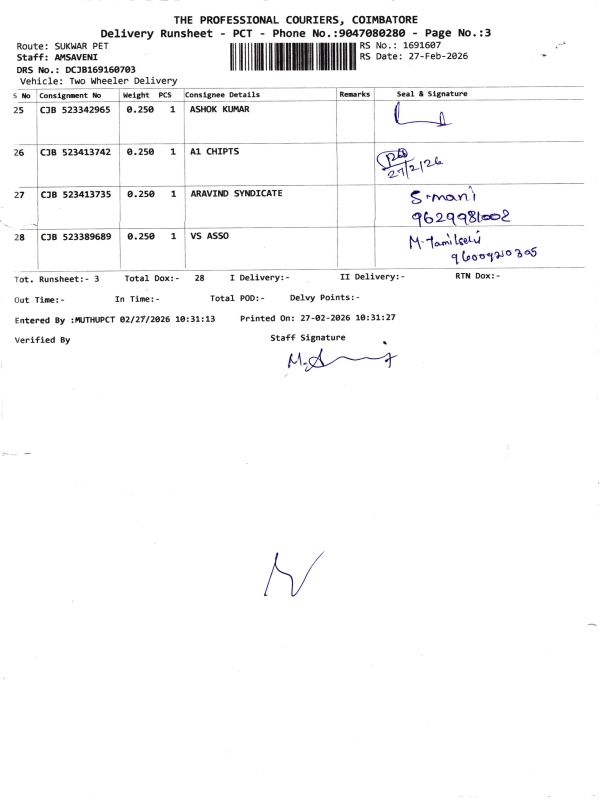 THE PROFESSIONAL COURIERS, COIMBATORE
Delivery Runsheet - PCT - Phone No.:9047080280 - Page No.:3
Route: SUKWAR PET
RS No.: 1691607
Staff: AMSAVENI
RS Date: 27-Feb-2026
DRS No.: DCJB169160703
Vehicle: Two Wheeler Delivery
S No Consignment No Weight PCS Consignee Details Remarks Seal & Signature
25 CJB 523342965 0.250 1 ASHOK KUMAR
26 CJB 523413742 0.250 1 A1 CHIPTS
27/2/26
27 CJB 523413735 0.250 1 ARAVIND SYNDICATE S.mani
9629981002
28 CJB 523389689 0.250 1 VS ASSO M.Tamilselvi
9600920305
Tot. Runsheet:- 3 Total Dox:- 28 I Delivery:- II Delivery:- RTN Dox:-
Out Time:- In Time:- Total POD:- Delvy Points:-
Entered By :MUTHUPCT 02/27/2026 10:31:13 Printed On: 27-02-2026 10:31:27
Verified By Staff Signature